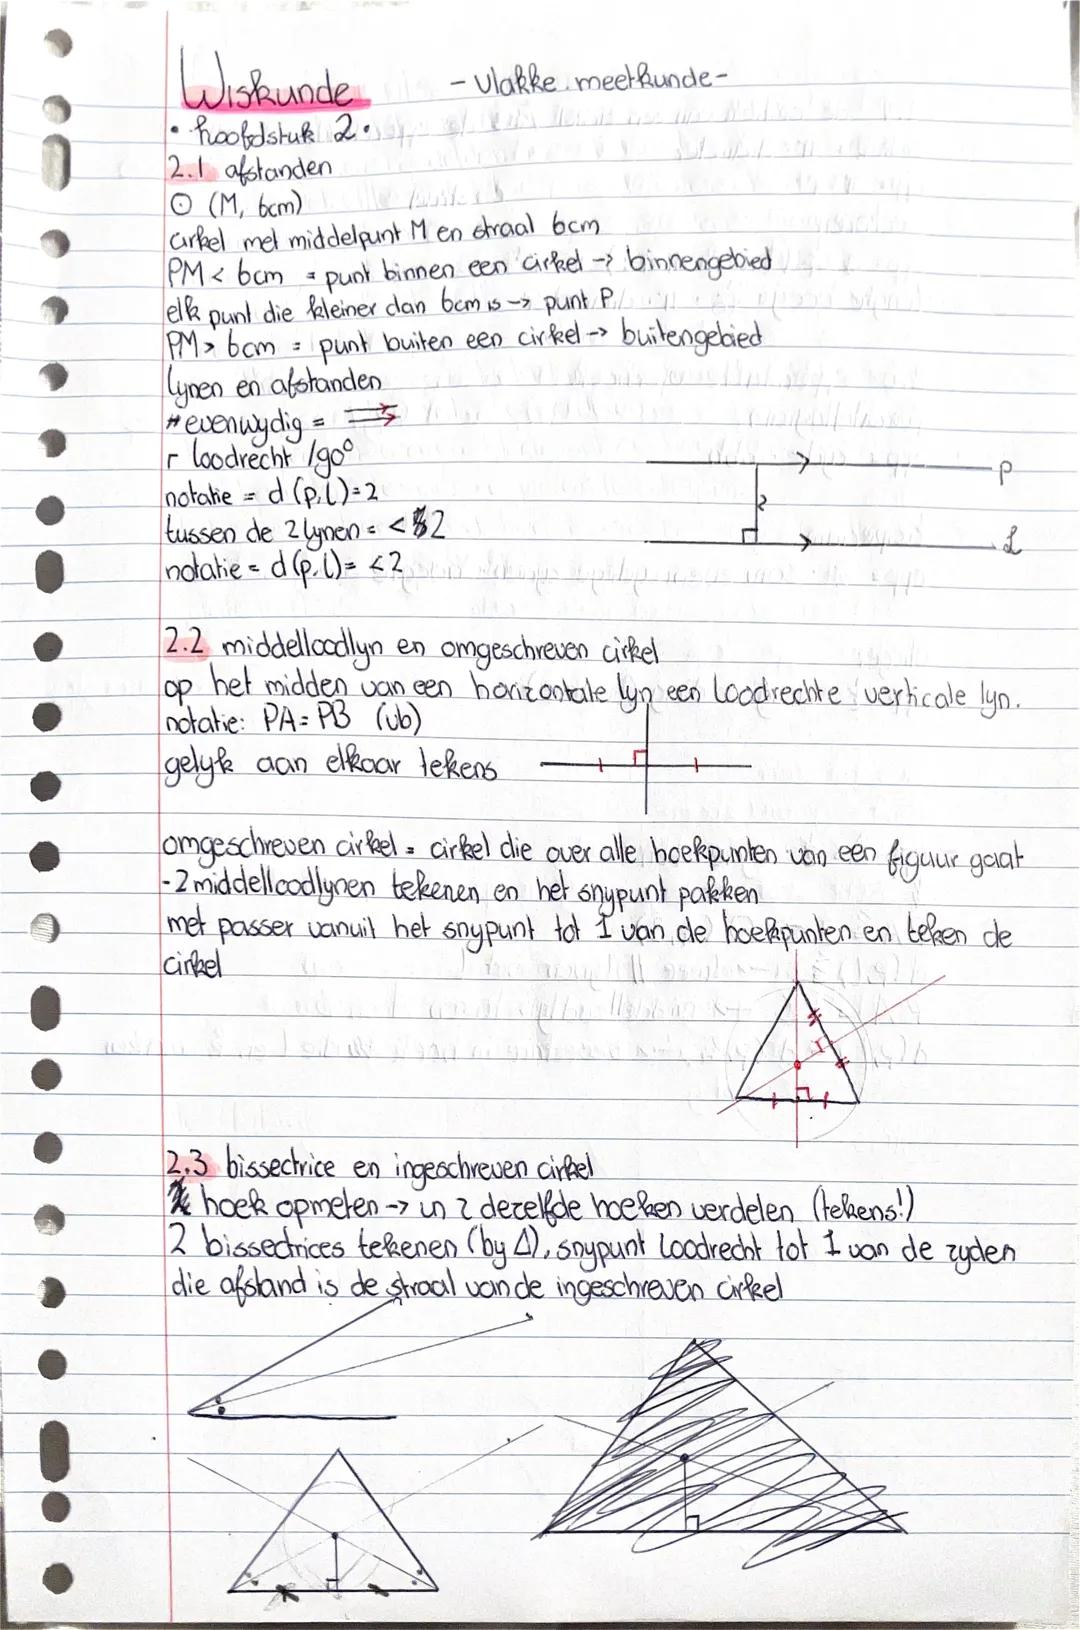 Wiskunde - vlakke meetkunde -
• hoofdstuk 2 •
2.1 afstanden
⊙ (M, 6cm)
cirkel met middelpunt M en straal 6cm
PM < 6cm = punt binnen een cirkel -> binnengebied
elk punt die kleiner dan 6cm is -> punt P
PM > 6cm = punt buiten een cirkel -> buitengebied
lynen en afstanden
// evenwydig =
loodrecht /90°
notatie = d (p, l) = 2
tussen de 2 lynen = < 2
notatie = d (p, l) = < 2
p
2
l
2.2 middelloodlyn en omgeschreven cirkel
op het midden van een horizontale lyn een loodrechte verticale lyn.
notatie: PA = PB (vb)
gelyk aan elkaar tekens
omgeschreven cirkel = cirkel die over alle hoekpunten van een figuur gaat
- 2 middelloodlynen tekenen en het snypunt pakken
met passer vanuit het snypunt tot 1 van de hoekpunten en teken de
cirkel
2.3 bissectrice en ingeschreven cirkel
hoek opmeten -> in 2 dezelfde hoeken verdelen (tekens!)
2 bissectrices tekenen (by Δ), snypunt loodrecht tot 1 van de zyden
die afstand is de straal van de ingeschreven cirkel